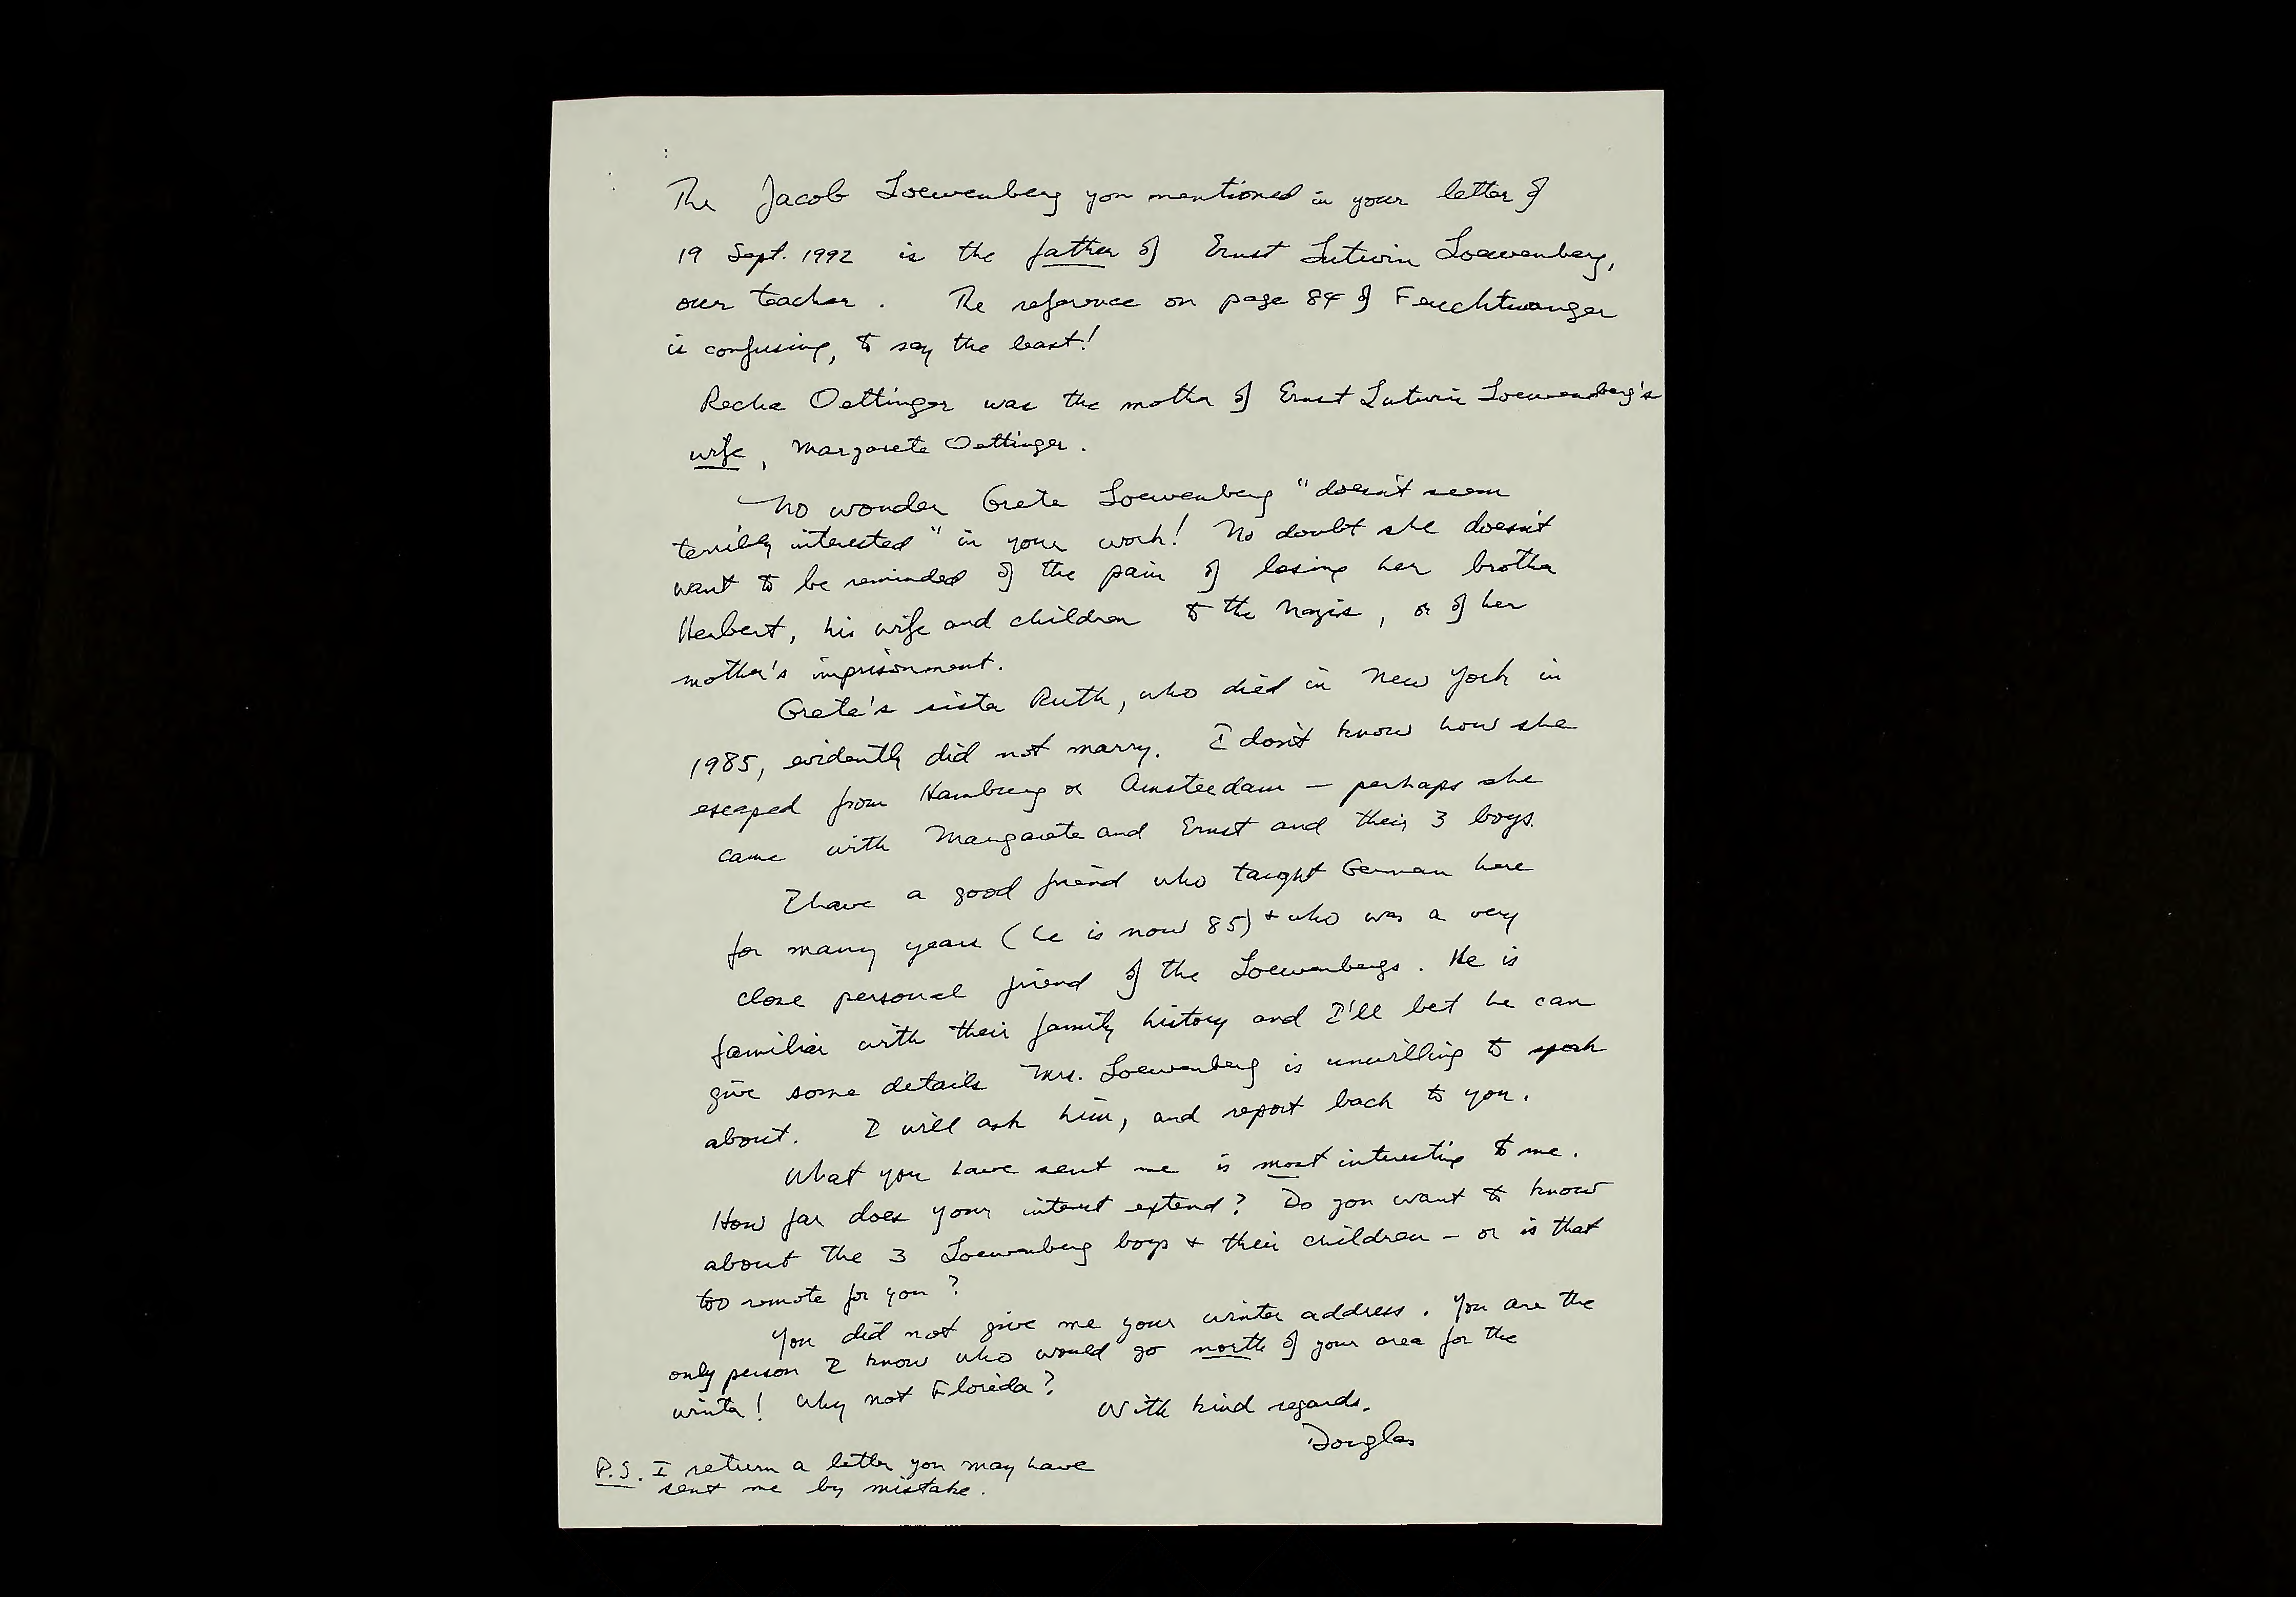 The Jacob Loewenberg you mentioned in your letter of
19 Sept. 1992 is the father of Ernst Lutwin Loewenberg,
our teacher. The reference on page 84 of Feuchtwanger
is confusing, to say the least!
Recha Oettinger was the mother of Ernst Lutwin Loewenberg's
wife, Margarete Oettinger.
No wonder Grete Loewenberg "doesn't seem
terribly interested" in your work! No doubt she doesn't
want to be reminded of the pain of losing her brother
Herbert, his wife and children to the Nazis, or of her
mother's imprisonment.
Grete's sister Ruth, who died in New York in
1985, evidently did not marry. I don't know how she
escaped from Hamburg or Amsterdam – perhaps she
came with Margarete and Ernst and their 3 boys.
I have a good friend who taught German here
for many years (he is now 85) + who was a very
close personal friend of the Loewenbergs. He is
familiar with their family history and I'll bet he can
give some details Mrs. Loewenberg is unwilling to speak
about. I will ask him, and report back to you.
What you have sent me is most interesting to me.
How far does your interest extend? Do you want to know
about the 3 Loewenberg boys + their children – or is that
too remote for you?
You did not give me your winter address. You are the
only person I know who would go north of your area for the
winter! Why not Florida?
With kind regards.
Douglas
P.S. I return a letter you may have
sent me by mistake.